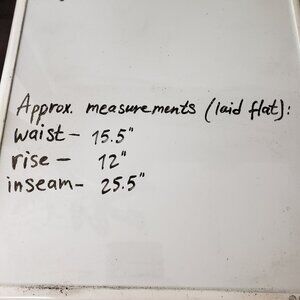 Approx. measurements (laid flat):
waist- 15.5"
rise- 12"
inseam- 25.5"